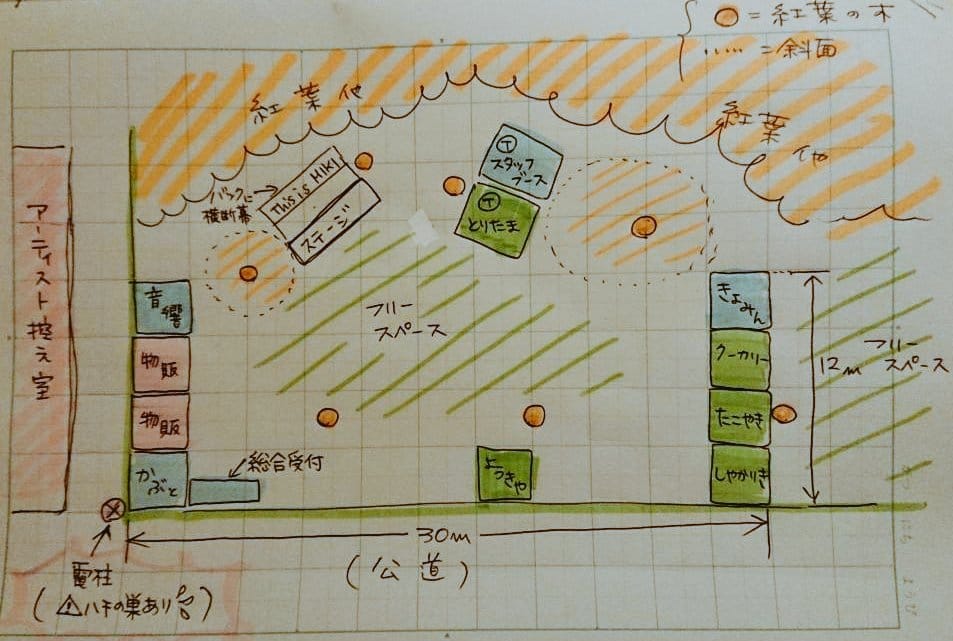 = 紅葉の木
‥‥‥ = 斜面
紅葉他
紅葉他
バックに
横断幕
This is MIKI
ステージ
Ⓣ
スタッフ
ブース
Ⓣ
とりたま
アーティスト控え室
音響
物販
物販
かぶと
総合受付
フリー
スペース
ようきや
きよみん
クーカリー
たこやき
しゃかりき
12m
フリー
スペース
30m
(公道)
電柱
(⚠ハチの巣あり)